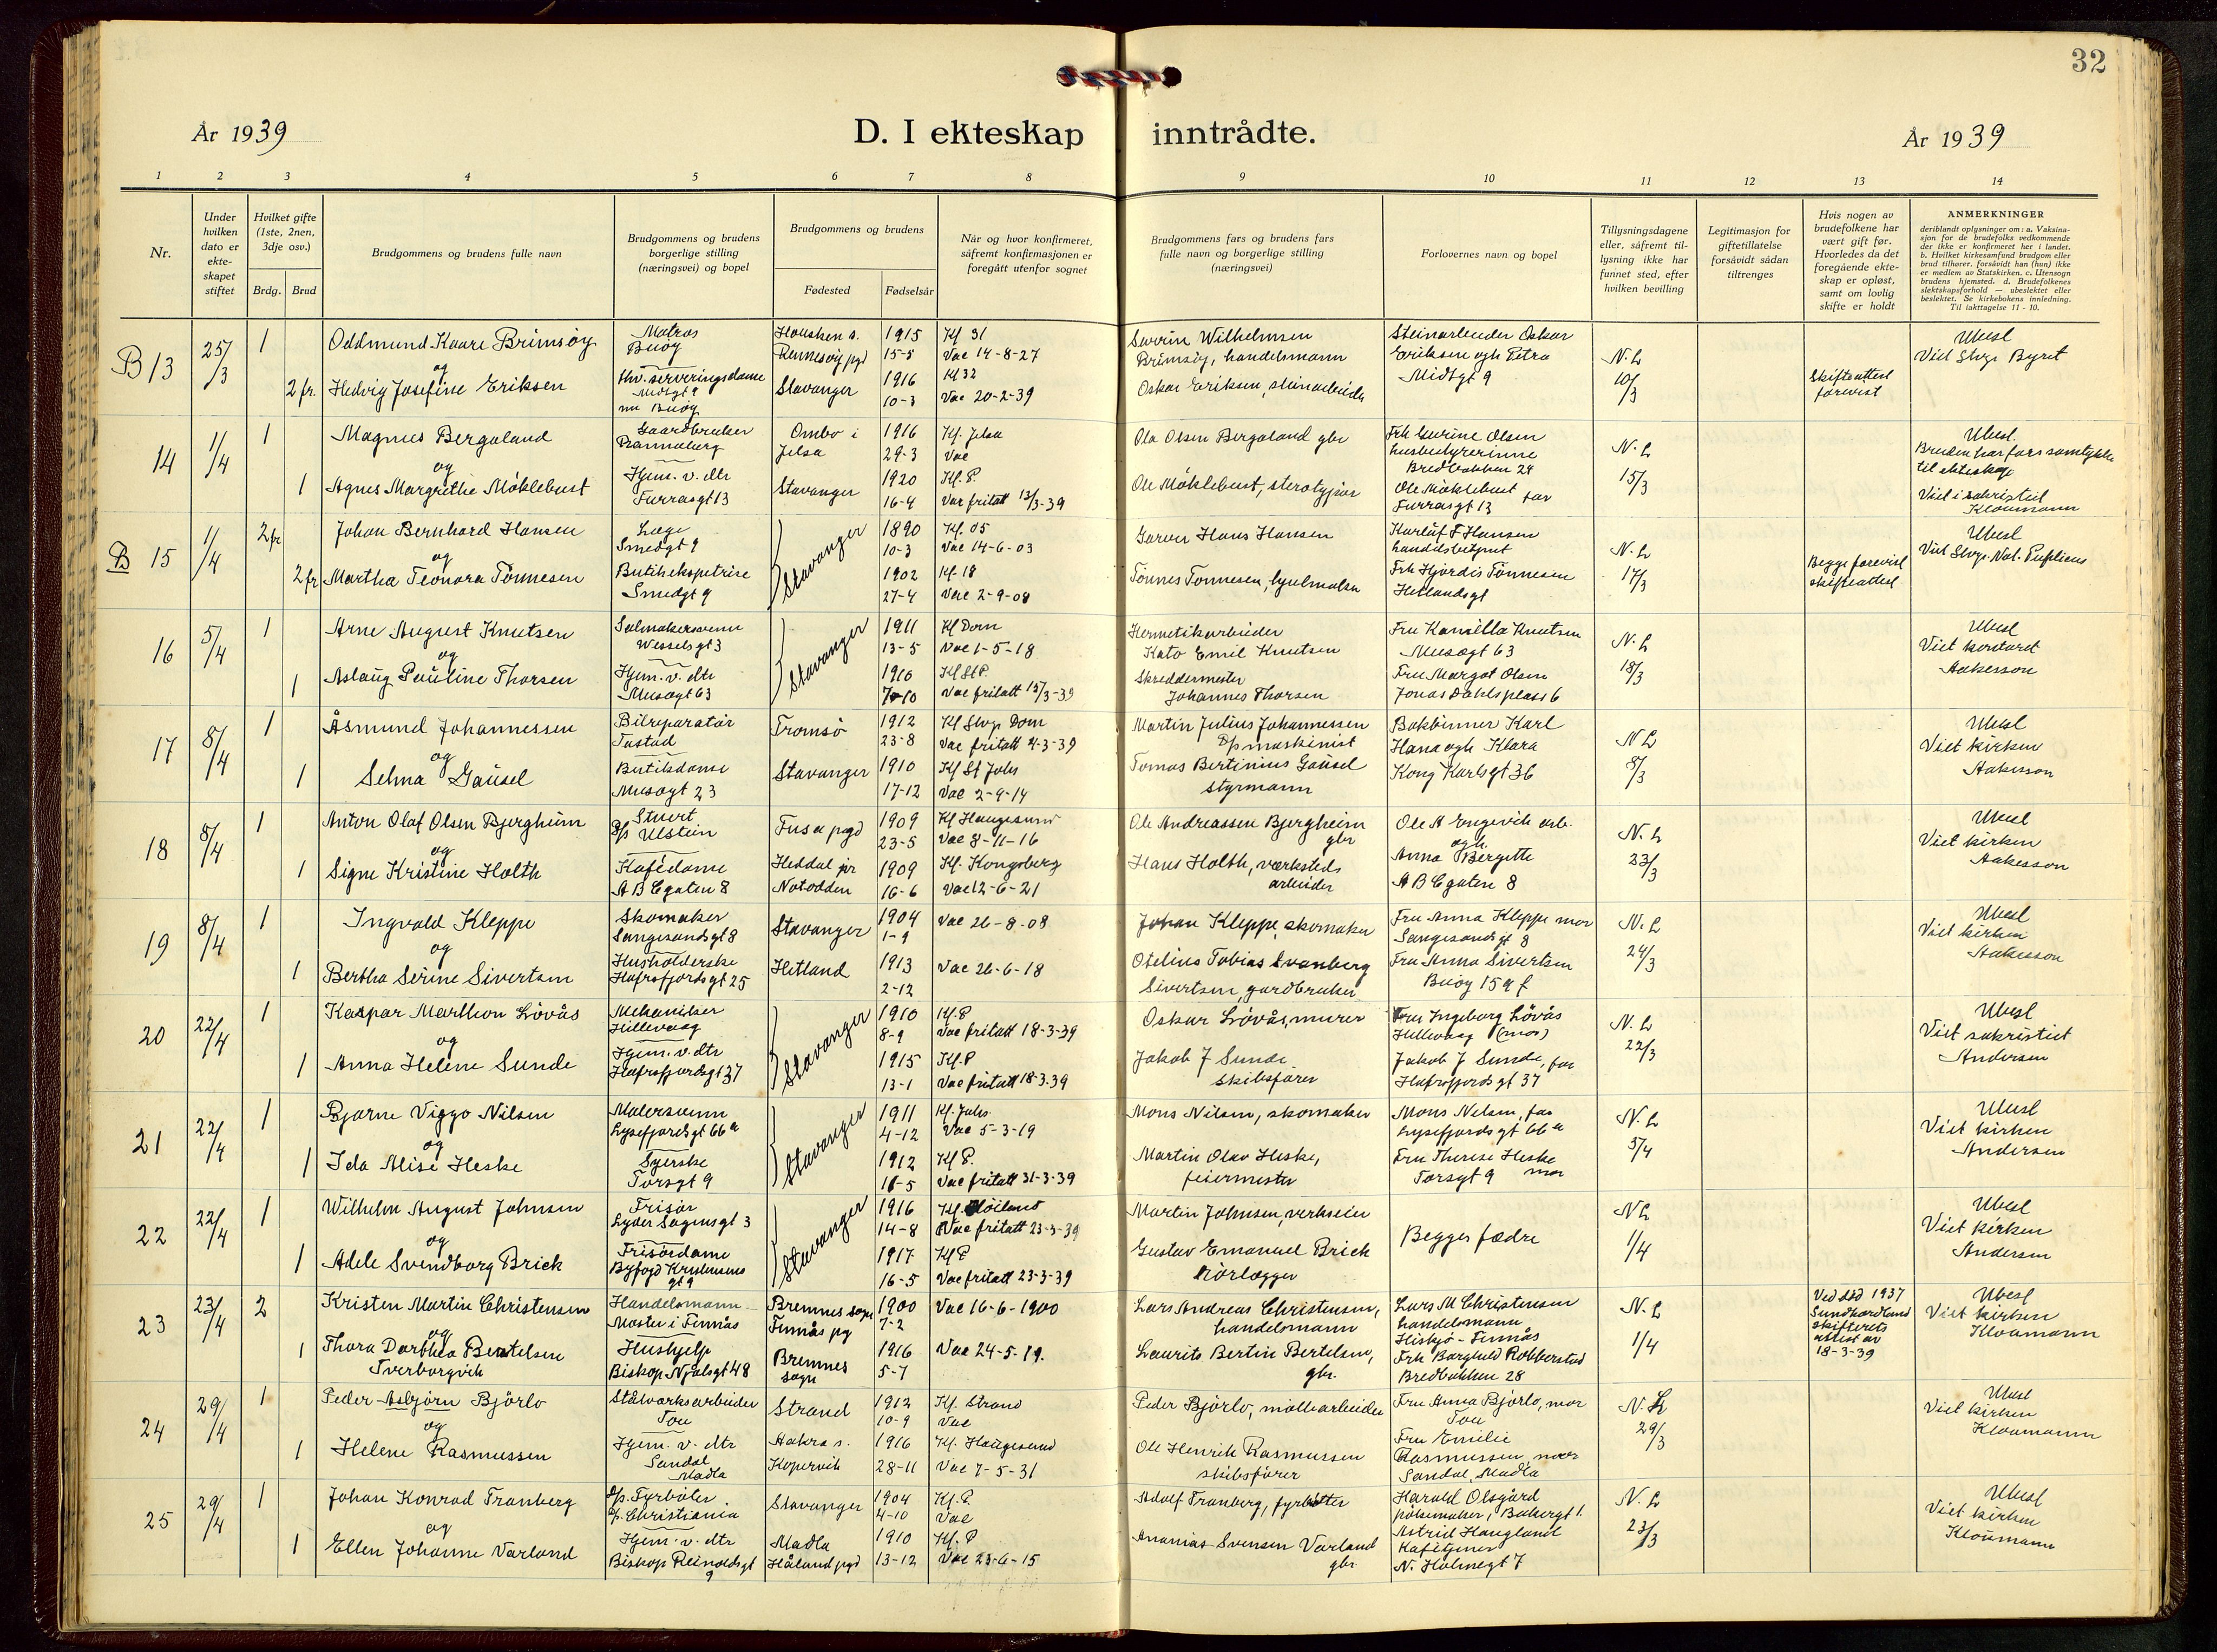 32
År 1939
D. I ekteskap inntrådte.
År 1939
1 2 3 4 5 6 7 8 9 10 11 12 13 14
Nr.
Under hvilken dato er ekte-skapet stiftet
Hvilket gifte (1ste, 2nen, 3dje osv.)
Brdg. Brud
Brudgommens og brudens fulle navn
Brudgommens og brudens borgerlige stilling (næringsvei) og bopel
Brudgommens og brudens
Fødested Fødselsår
Når og hvor konfirmeret, såfremt konfirmasjonen er foregått utenfor sognet
Brudgommens fars og brudens fars fulle navn og borgerlige stilling (næringsvei)
Forlovernes navn og bopel
Tillysningsdagene eller, såfremt til-lysning ikke har funnet sted, efter hvilken bevilling
Legitimasjon for giftetillatelse forsåvidt sådan tiltrenges
Hvis nogen av brudefolkene har vært gift før. Hvorledes da det foregående ekte-skap er opløst, samt om lovlig skifte er holdt
ANMERKNINGER
deriblandt oplysninger om: a. Vaksina-sjon for de brudefolks vedkommende der ikke er konfirmeret her i landet. b. Hvilket kirkesamfund brudgom eller brud tilhører, forsåvidt han (hun) ikke er medlem av Statskirken. c. Utensogn brudens hjemsted. d. Brudefolkenes slektskapsforhold — ubeslektet eller beslektet. Se kirkebokens innledning. Til iakttagelse 11 - 10.
B 13 25/3 1 Oddmund Kaare Brimsöy Matros Buöy Hausken s. Rennesöy pgd 1915 15-5 Kf 31 Vac 14-8-27 Severin Wilhelmsen Brimsöy, handelsmann Steinarbeider Oskar Eriksen ogh Petra Midtgt 9 N. L 10/3 Ubesl Viet Stvgr Byret
og
2 fr. Hedvig Josefine Eriksen Hv. serveringsdame Midtgt 9 nu Buöy Stavanger 1916 10-3 Kf 32 Vac 20-2-39 Oskar Eriksen, steinarbeider Skifteattest forevist
14 1/4 1 Magnus Bergaland Gaardbruker Ombo i Jelsa 1916 29-3 Kf. Jelsa Vac Ola Olsen Bergaland gbr Frk Gurine Olsen husbestyrerinne Bredbakken 24 N. L 15/3 Ubesl. Bruden har fars samtykke til ekteskap
og
1 Agnes Margrethe Möklebust Hjem. v. dtr Furrasgt 13 Stavanger 1920 16-4 Kf. P. Vac fritatt 13/3-39 Ole Möklebust, sterotypör Ole Möklebust far Furrasgt 13 Viet i sakristiet Kloumann
B 15 1/4 2 fr Johan Bernhard Hansen Læge Smedgt 9 Stavanger 1890 10-3 Kf. 05 Vac 14-6-03 Garver Hans Hansen Karluf F Hansen handelsbetjent N. L 17/3 Begge forevist skifteattest Ubesl Viet Stvgr. Not. Publicus
og
2 fr Martha Teonora Tönnesen Butikekspetrise Smedgt 9 1902 27-4 Kf. 18 Vac 2-9-08 Tönnes Tonnesen, hjulmaker Frk Hjördis Tönnesen Hetlandsgt
16 5/4 1 Arne August Knutsen Salmakersvenn Wesselsgt 3 Stavanger 1911 13-5 Kf Dom Vac 1-5-18 Hermetikarbeider Kato Emil Knutsen Fru Kamilla Knutsen Musægt 63 N. L 18/3 Ubesl Viet kontoret Aakesson
og
1 Aslaug Pauline Thorsen Hjem. v. dtr Musægt 63 1916 7-10 Kf St P. Vac fritatt 15/3-39 Skreddermester Johannes Thorsen Fru Margot Olsen Jonas Dahlsplass 6
17 8/4 1 Åsmund Johannessen Bilreparatör Tastad Tromsö 1912 23-8 Kf Stvgr Dom Vac fritatt 4-3-39 Martin Julius Johannessen D/p maskinist Bokbinner Karl Hana ogh Klara Kong Karlsgt 36 N L 8/3 Ubesl Viet kirken Aakesson
og
1 Selma Gausel Butikdame Musægt 23 Stavanger 1910 17-12 Kf St Johs Vac 2-9-14 Tomas Bertinius Gausel styrmann
18 8/4 1 Anton Olaf Olsen Bjergheim Stuert D/s Ulstein Fusa pgd 1909 23-5 Kf Haugesund Vac 8-11-16 Ole Andreassen Bjergheim gbr Ole A Engevik arb. ogh. Anna Bergitte A B C gaten 8 N. L 23/3 Ubesl Viet kirken Aakesson
og
1 Signe Kristine Holth Kafédame A B C gaten 8 Heddal pr Notodden 1909 16-6 Kf. Kongsberg Vac 12-6-21 Hans Holth, værksteds arbeider
19 8/4 1 Ingvald Kleppe Skomaker Sangesandsgt 8 Stavanger 1904 1-9 Vac 26-8-08 Johan Kleppe, skomaker Fru Anna Kleppe mor Sangesandsgt 8 N. L 24/3 Ubesl Viet kirken Aakesson
og
1 Bertha Serine Sivertsen Husholderske Hafrsfjordsgt 25 Hetland 1913 2-12 Vac 26-6-18 Otelius Tobias Svanberg Sivertsen, gardbruker Fru Anna Sivertsen Buöy 159 f
20 22/4 1 Kaspar Marthon Lövås Mekaniker Hillevaag Stavanger 1910 8-9 Kf. P Vac fritatt 18-3-39 Oskar Lövås, murer Fru Ingeborg Lövås Hillevaag (mor) N. L 22/3 Ubesl Viet sakristiet Andersen
og
1 Anna Helene Sunde Hjem. v. dtr Hafrsfjordsgt 37 1915 13-1 Kf. P Vac fritatt 18-3-39 Jakob J Sunde skibsförer Jakob J Sunde, far Hafrsfjordsgt 37
21 22/4 1 Bjarne Viggo Nilsen Malersvenn Lysefjordsgt 66a Stavanger 1911 4-12 Kf. Johs. Vac 5-3-19 Mons Nilsen, skomaker Mons Nilsen, far Lysefjordsgt 66a N. L 5/4 Ubesl Viet kirken Andersen
og
1 Ida Alise Heske Syerske Torsgt 9 1912 16-5 Kf P. Vac fritatt 31-3-39 Martin Olav Heske, feiermester Fru Therese Heske Torsgt 9 mor
22 22/4 1 Wilhelm August Johnsen Frisör Lyder Sagensgt 3 Stavanger 1916 14-8 Kf. Höiland Vac fritatt 23-3-39 Martin Johnsen, verkseier Begges fædre N L 1/4 Ubesl Viet kirken Andersen
og
1 Adele Svendborg Brick Frisördame Byfogd Kristensens gt 9 1917 16-5 Kf P Vac fritatt 23-3-39 Gustav Emanuel Brick Rörlægger
23 23/4 2 Kristen Martin Christensen Handelsmann Moster i Finnås Bremnes sogn Finnås pg 1900 7-2 Vac 16-6-1900 Lars Andreas Christensen, handelsmann Lars M Christensen handelsmann Hiskjo - Finnås N. L 1/4 Ved död 1937 Sundhordland skifterets attest av 18-3-39 Ubesl Viet kirken Kloumann
og
1 Thora Dorthea Bertelsen Tverborgvik Hushjelp Biskop Njålsgt 48 Bremnes sogn 1916 5-7 Vac 24-5-19. Laurits Bertin Bertelsen, gbr. Frk Borghild Robberstad Bredbakken 28
24 29/4 1 Peder Asbjörn Björlo Stålværksarbeider Tou Strand 1912 10-9 Kf. Strand Vac Peder Björlo, möllearbeider Fru Anna Björlo, mor Tou N. L 29/3 Ubesl Viet kirken Kloumann
og
1 Helene Rasmussen Hjem. v. dtr Sandal Madla Aakra s. Kopervik 1916 28-11 Kf. Haugesund Vac 7-5-31 Ole Henrik Rasmussen skibsförer Fru Emilie Rasmussen, mor Sandal, Madla
25 29/4 1 Johan Konrad Tranberg D/p. Fyrböter D/s. Christiania Stavanger 1904 4-10 Kf. P. Vac Adolf Tranberg, fyrböter Harald Olsgård pölsemaker, Bakergt 1. N. L 23/3 Ubesl Viet kirken Kloumann
og
1 Ellen Johanne Varland Hjem. v. dtr Biskop Reinaldsgt 9 Madla Håland pgd 1910 13-12 Kf. P Vac 23-6-15 Ananias Svensen Varland gbr. Astrid Haugland Kafetjener N. Holmegt 7